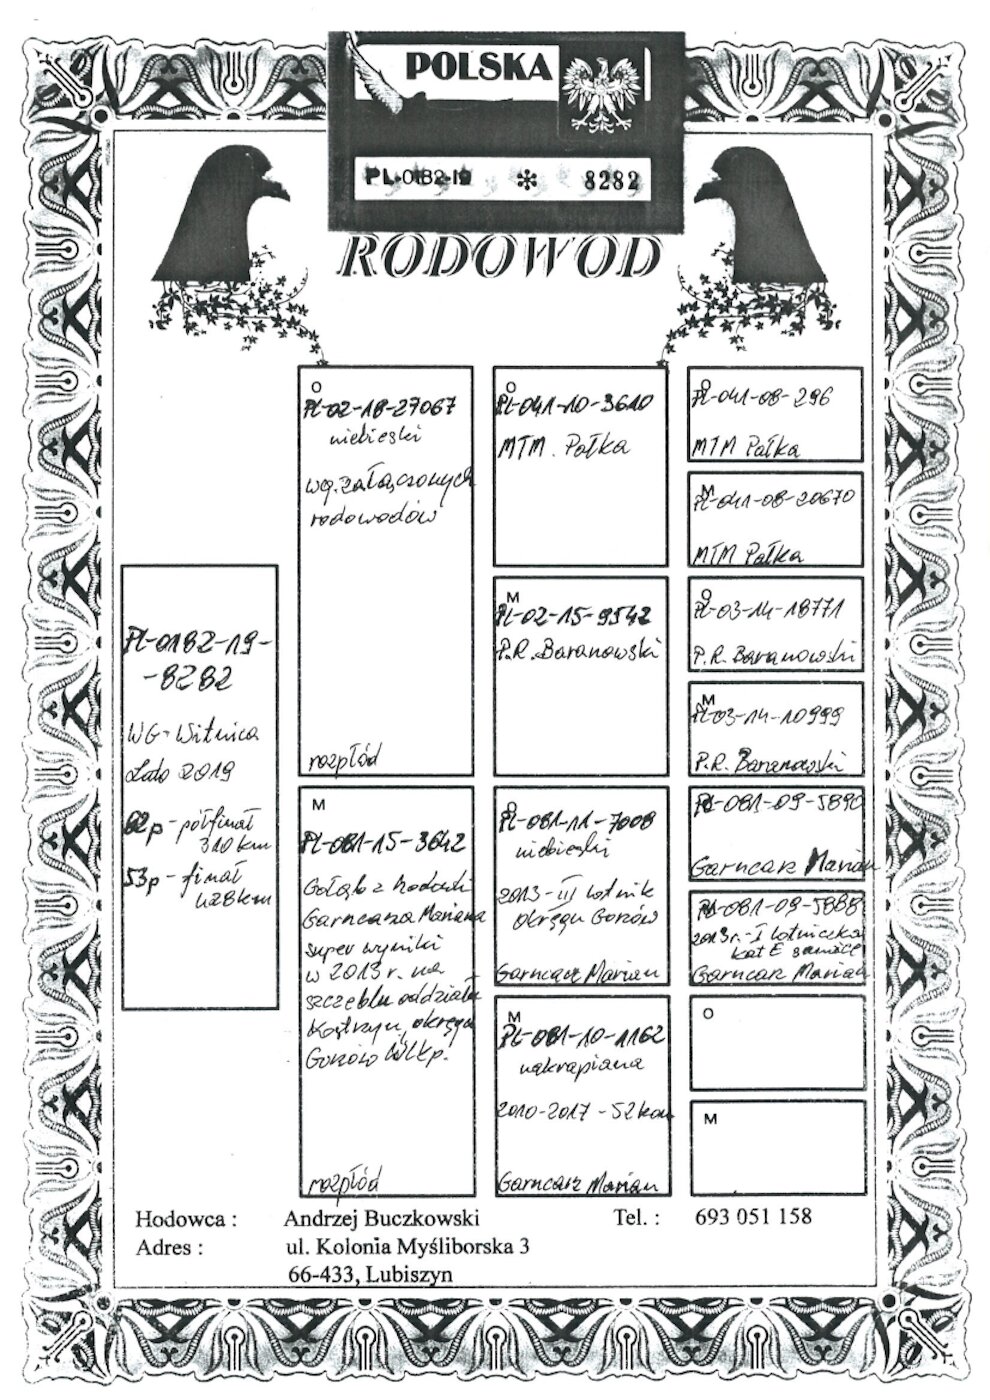 POLSKA
PL-0182-19 * 8282
RODOWOD
PL-0182-19-
-8282
WG-Witnica
Lato 2019
82p - półfinał
310 km
53p - finał
428km
O
PL-02-18-27067
niebieski
wg. załączonych
rodowodów
rozpłód
M
PL-081-15-3642
Gołąb z hodowli
Garncarza Mariana
super wyniki
w 2013 r. na
szczeblu oddziału
Kostrzyn, okręgu
Gorzów Wlkp.
rozpłód
O
PL-041-10-3610
MTM. Pałka
M
PL-02-15-9542
P.R. Baranowski
O
PL-081-11-7008
niebieski
2013-III lotnik
okręgu Gorzów
Garncarz Marian
M
PL-081-10-1162
nakrapiana
2010-2017 - 52 kon
Garncarz Marian
O
PL-041-08-296
MTM Pałka
M
PL-041-08-20670
MTM Pałka
O
PL-03-14-18771
P.R. Baranowski
M
PL-03-14-10999
P.R. Baranowski
PL-081-09-5890
Garncarz Marian
PL-081-09-5888
2013r.-I lotniczka
kat E samice
Garncarz Marian
O
M
Hodowca : Andrzej Buczkowski Tel. : 693 051 158
Adres : ul. Kolonia Myśliborska 3
66-433, Lubiszyn